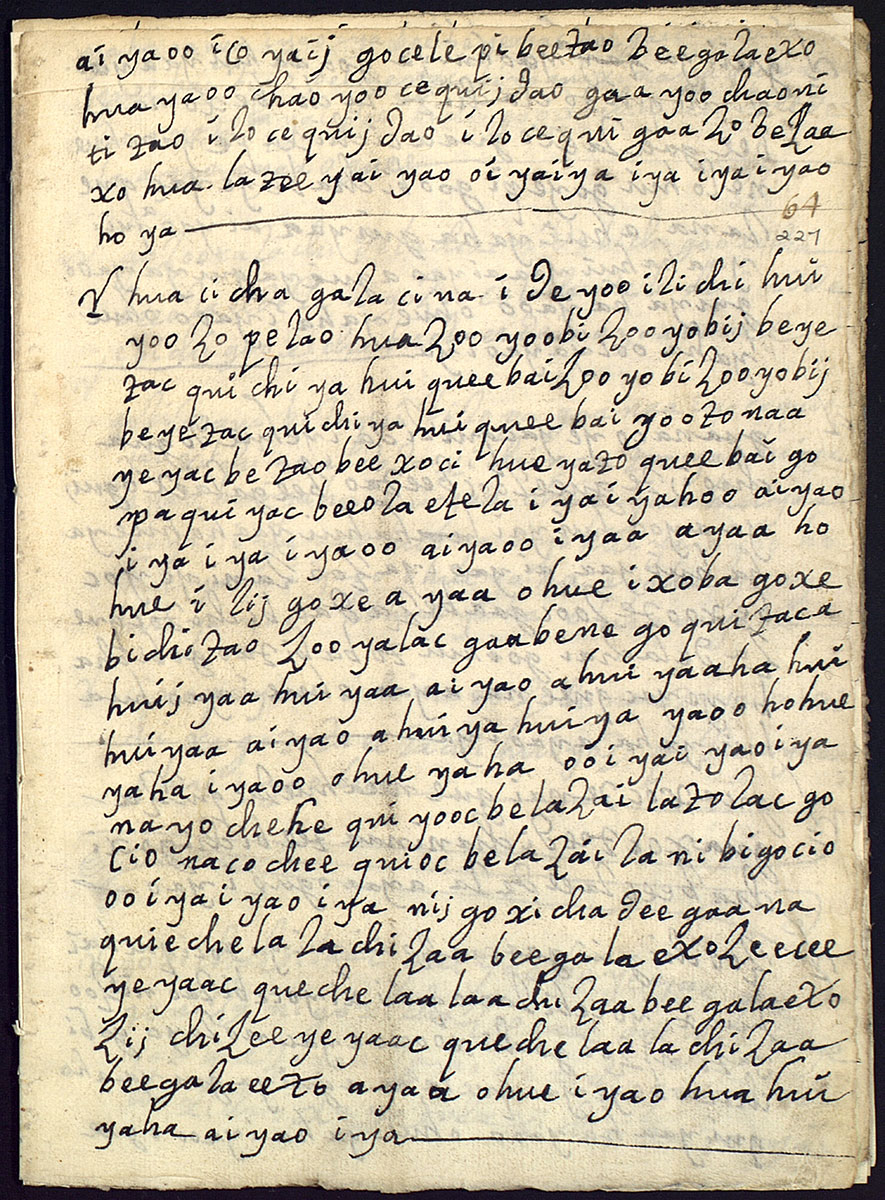 ai yaoo ico yaij gocele pi beezao beegalaexo
hua yaoo chao yoo cequij dao gaa yoo chaoni
ti zao i lo ce quij dao i lo ce qui gaa lo be laa
xo hua la zee yai yao oi yaiya iya iya i yao
ho ya
64
227
V hua ci cha gala ci na i de yoo ili chi hui
yoo lo pe lao hua loo yoobi loo yobij be ye
zac qui chi ya hui quee bai loo yobi loo yobij
be ye zac quichi ya hui quee bai yoozo naa
ye yac be zao bee xoci hue yazo quee bai go
pa qui yac beeo la etela i ya i yahoo ai yao
i ya i ya i yaoo ai yaoo i yaa ayaa ho
hue i lij goxe a yaa ohue ixoba goxe
bichi zao loo yalac gaabene go quizaca
huij yaa hui yaa ai yao ahui yaaha hui
hui yaa ai yao ahui ya hui ya yaoo hohue
yaha i yaoo ohue yaha ooi yai yaoi ya
na yo chehe qui yooc bela lai lazo lac go
cio naco chee quioc bela lai la ni bigocio
oo i ya i yao i ya nij goxicha dee gaa na
quiechela la chi laa beegala exo leecee
ye yaac queche laa laa chi laa bee galaexo
lij chi lee ye yaac queche laa la chi laa
beegala eezo ayaa ohue i yao hua hui
yaha ai yao i ya